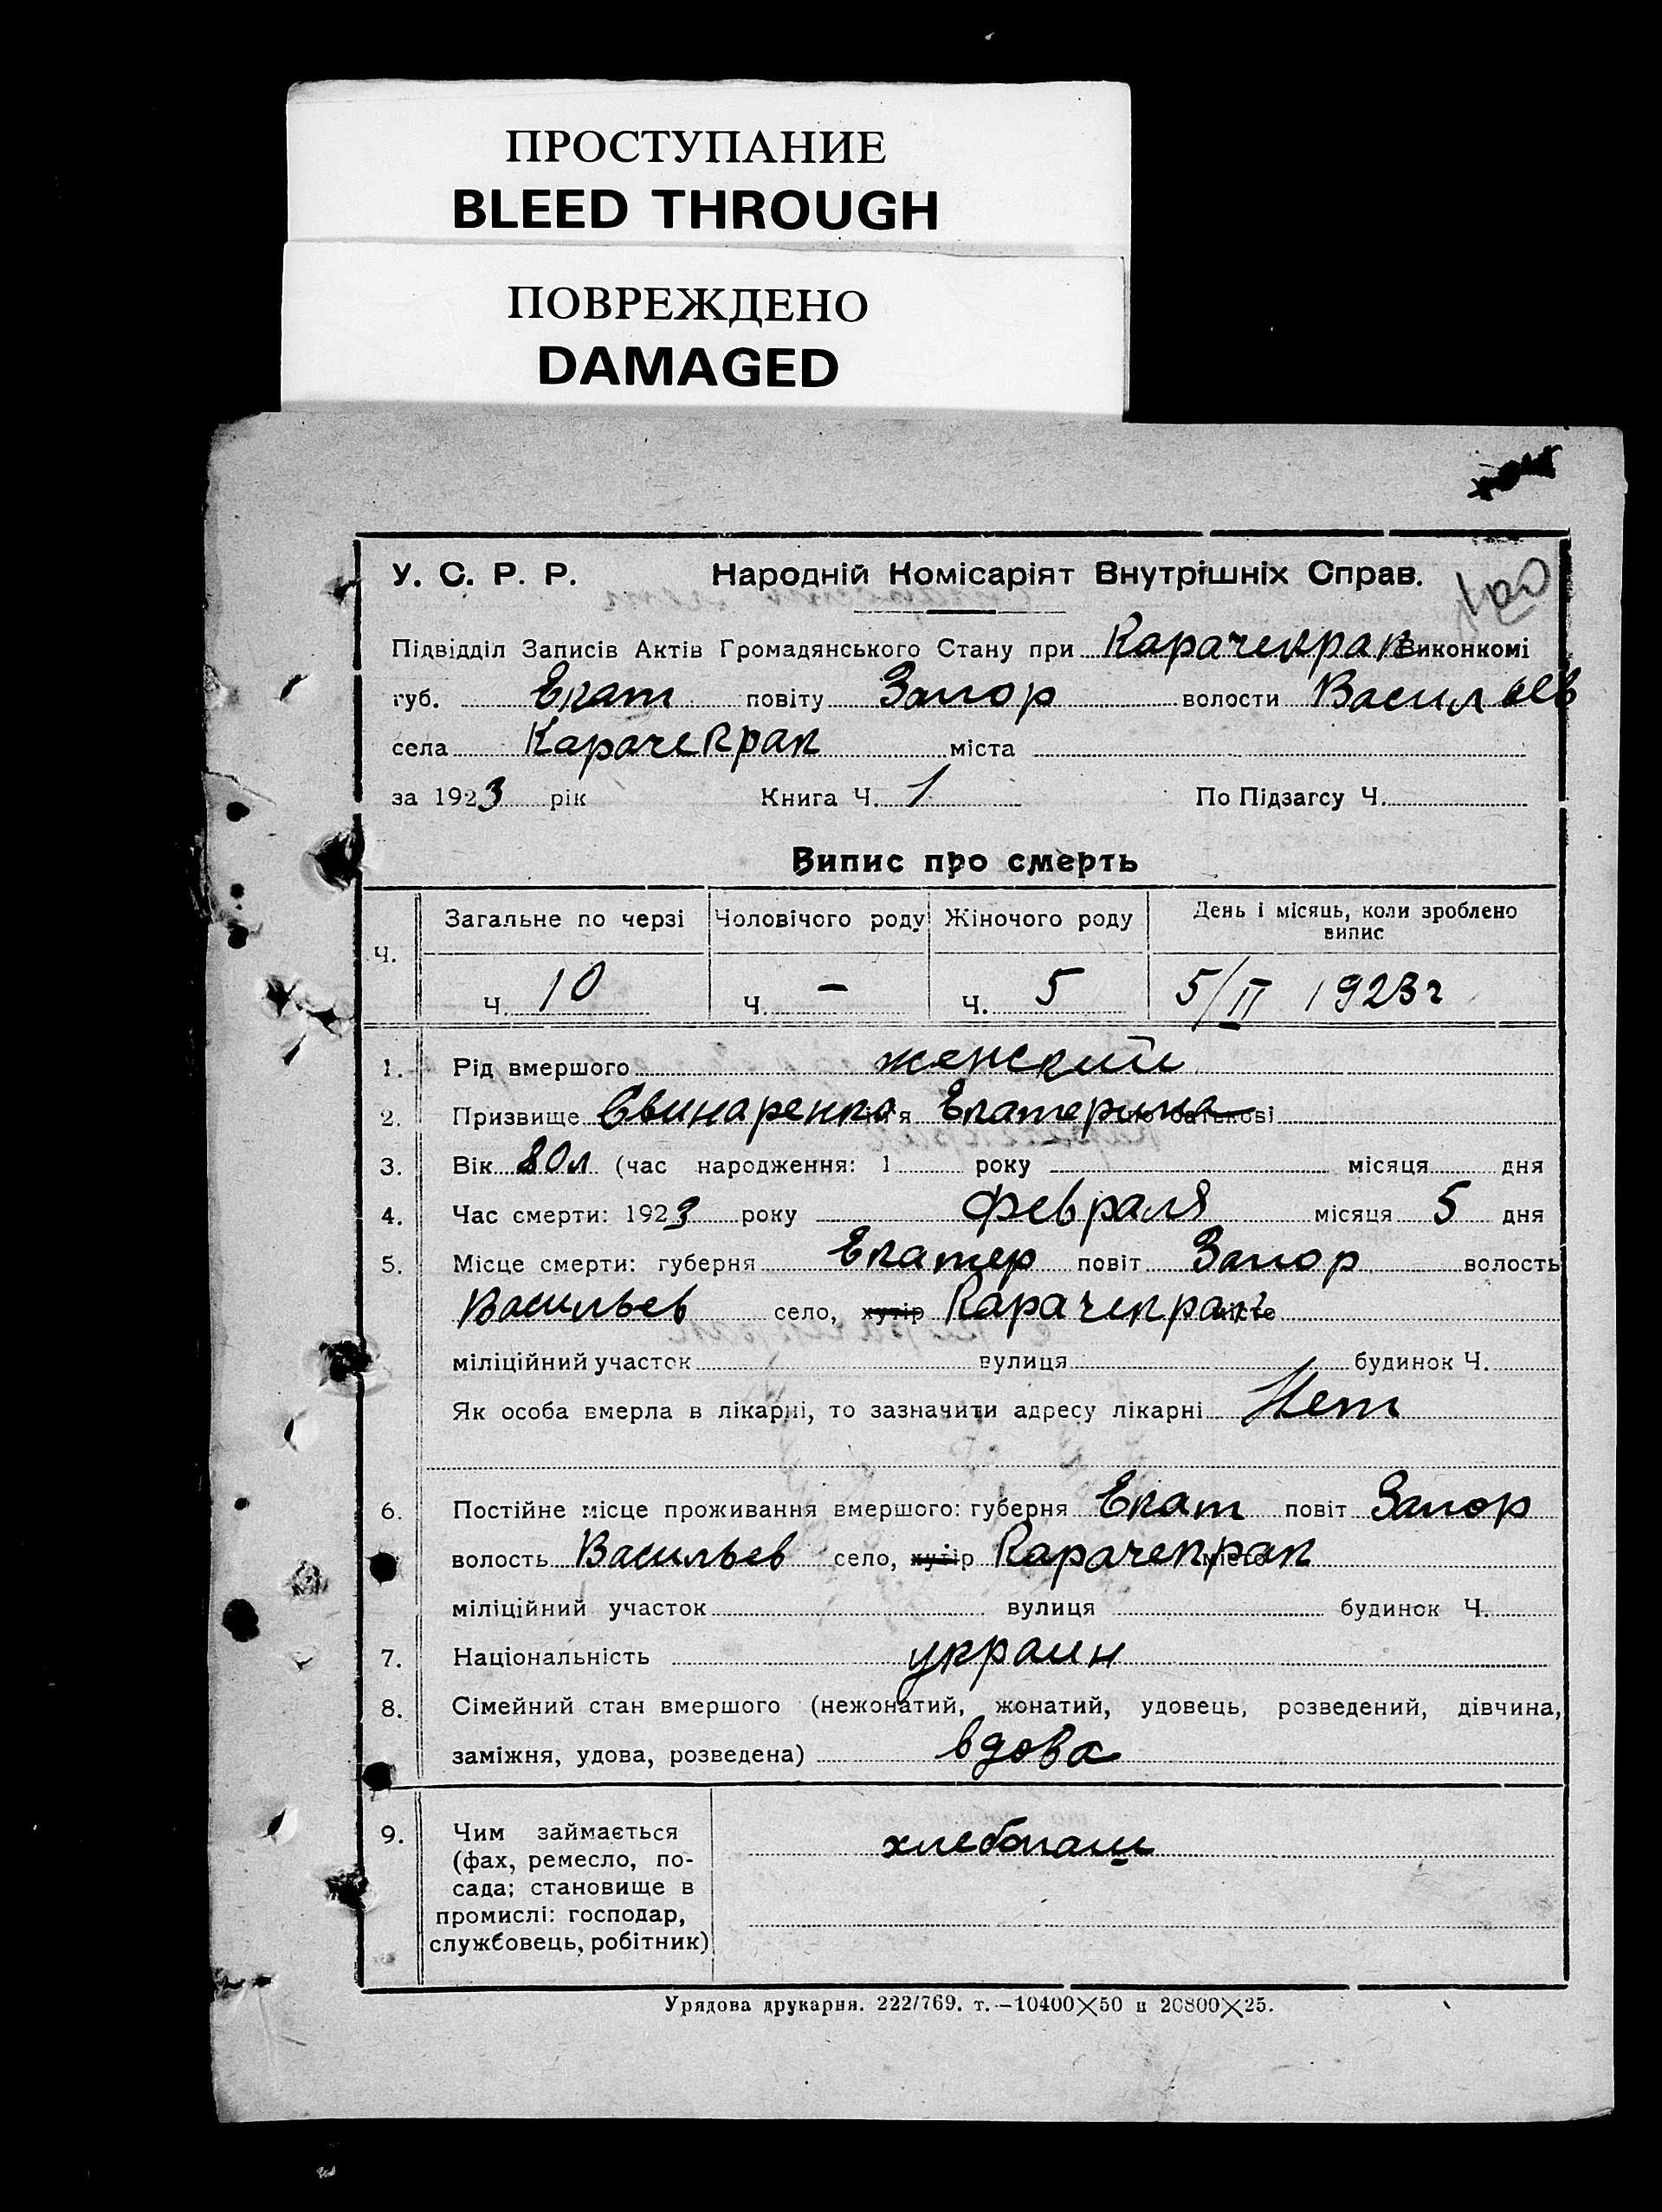 ПРОСТУПАНИЕ
BLEED THROUGH
ПОВРЕЖДЕНО
DAMAGED
У. С. Р. Р. Народній Комісаріят Внутрішніх Справ.
Підвідділ Записів Актів Громадянського Стану при Карачекрак Виконкомі
губ. Екат повіту Запор волости Васильев
села Карачекрак міста
за 1923 рік Книга Ч. 1 По Підзагсу Ч.
Випис про смерть
Ч. Загальне по черзі Чоловічого роду Жіночого роду День і місяць, коли зроблено
випис
Ч. 10 Ч. — Ч. 5 5/II 1923 г
1. Рід вмершого женский
2. Призвище Свинаренко ім'я Екатерина по батькові
3. Вік 80 л (час народження: 1 року місяця дня
4. Час смерти: 1923 року февраля місяця 5 дня
5. Місце смерти: губерня Екатер повіт Запор волость
Васильев село, хутір Карачекрак місто
міліційний участок вулиця будинок Ч.
Як особа вмерла в лікарні, то зазначити адресу лікарні Нет
6. Постійне місце проживання вмершого: губерня Екат повіт Запор
волость Васильев село, хутір Карачекрак місто
міліційний участок вулиця будинок Ч.
7. Національність украин
8. Сімейний стан вмершого (нежонатий, жонатий, удовець, розведений, дівчина,
заміжня, удова, розведена) вдова
9. Чим займається хлебопаш
(фах, ремесло, по-
сада; становище в
промислі: господар,
службовець, робітник)
Урядова друкарня. 222/769. т.—10400×50 п 20800×25.